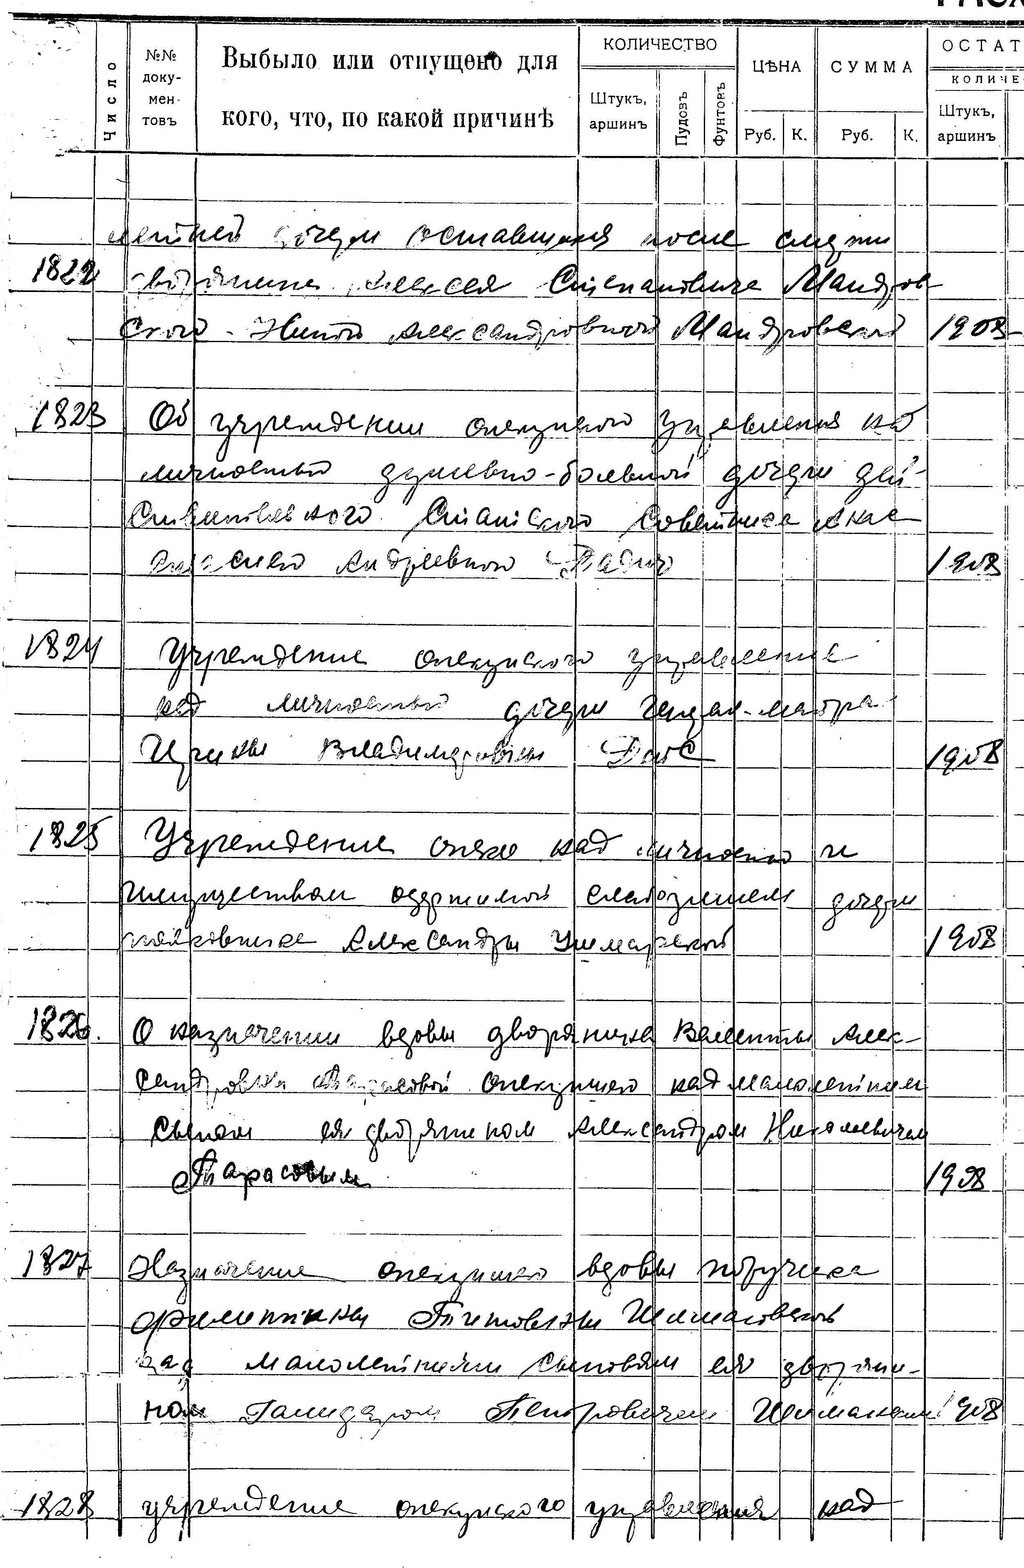 Число
№№ доку- мен- товъ
Выбыло или отпущено для
кого, что, по какой причинѣ
КОЛИЧЕСТВО
Штукъ, аршинъ
Пудовъ
Фунтовъ
ЦѢНА
Руб. К.
СУММА
Руб. К.
ОСТАТ
КОЛИЧЕ
Штукъ, аршинъ
летней дочери оставшейся после смерти
1822 дворянина Алексея Степановича Мандров
ской Александровной Мандровской 1908
1823 Об учреждении опекунского управления над
личностью душевно-больной дочери дей-
ствительного Статского Советника Анас
тасиею Андреевною 1908
1824 Учреждение опекунского управления
над личностью дочери генерал-майора
Ирины Владимировны 1908
1825 Учреждение опеки над личностью и
имуществом одержимой слабоумием дочери
полковника Александры 1908
1826. О назначении вдовы дворянина Валентины Алек-
сандровны Тарасовой опекуншею над малолетним
сыном ея дворянином Александром Николаевичем
Тарасовым 1908
1827 Назначение опекуншею вдовы поручика
Титовны
над малолетним сыновьям ея дворяни-
ном Петровичем 1908
1828 учреждение опекунского управления над